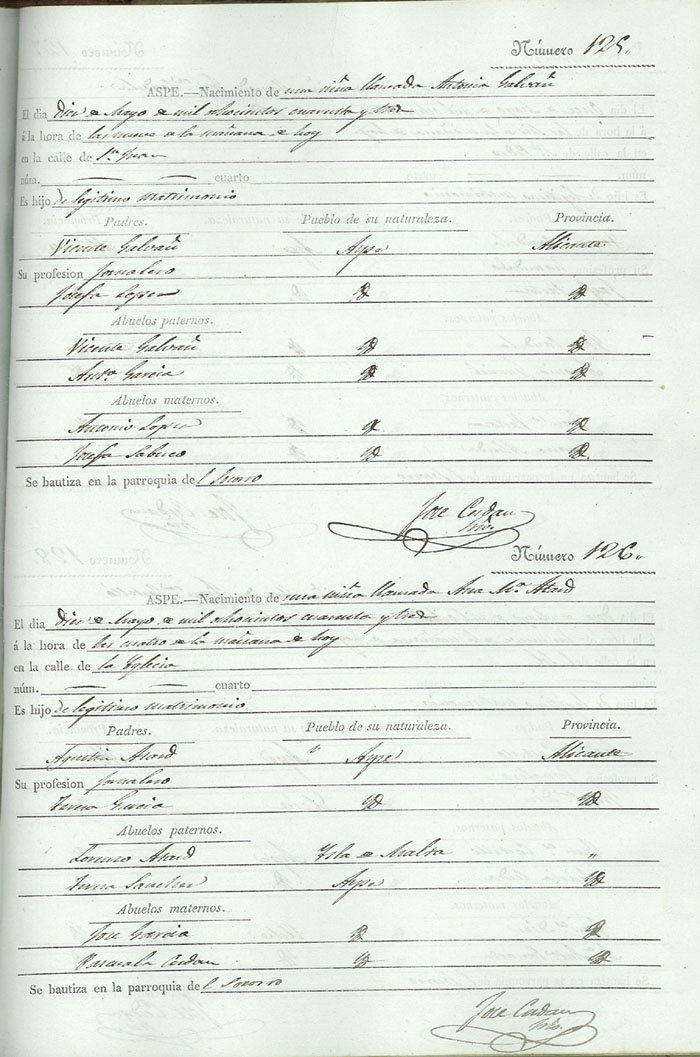 Número 125.
ASPE.—Nacimiento de una niña llamada Antonia Galvañ
El dia diez de Mayo de mil ochocientos cuarenta y tres
á la hora de las nueve de la mañana de hoy
en la calle de Sn. Juan
núm. — — cuarto
Es hijo de legitimo matrimonio
Padres. Pueblo de su naturaleza. Provincia.
Vicente Galvañ Aspe Alicante
Su profesion Jornalero
Josefa Lopez Yd Yd
Abuelos paternos.
Vicente Galvañ Yd Yd
Anta. Garcia Yd Yd
Abuelos maternos.
Antonio Lopez Yd Yd
Josefa Sabuco Yd Yd.
Se bautiza en la parroquia del Socorro
Jose Cerdan
Srio.
Número 126.
ASPE.—Nacimiento de una niña llamada Ana Ma. Atard
El dia diez de Mayo de mil ochocientos cuarenta y tres
á la hora de las cuatro de la mañana de hoy
en la calle de la Yglesia
núm. — — cuarto
Es hijo de legitimo matrimonio
Padres. Pueblo de su naturaleza. Provincia.
Agustin Atard Aspe Alicante
Su profesion Jornalero
Teresa Garcia Yd Yd
Abuelos paternos.
Lorenzo Atard Ysla de Malta "
Teresa Sanchez Aspe Yd
Abuelos maternos.
Jose Garcia Yd Yd
Pascuala Cerdan Yd Yd
Se bautiza en la parroquia del Socorro
Jose Cerdan
Srio.